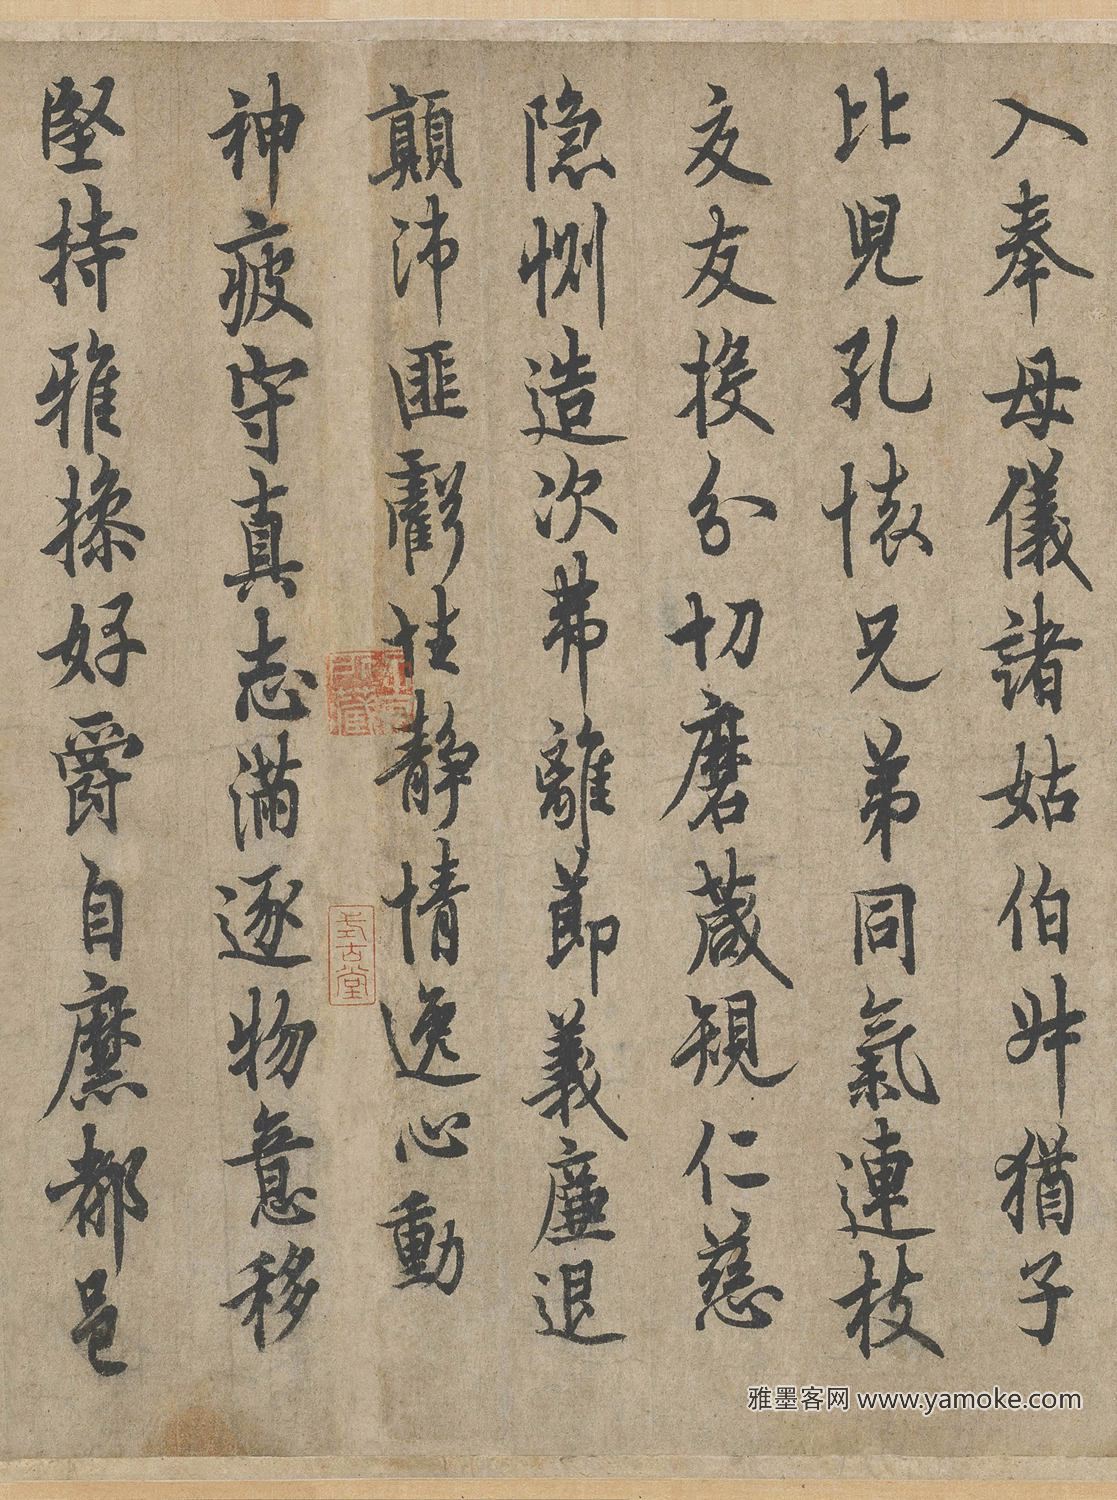 入奉母儀諸姑伯叔猶子
比兒孔懷兄弟同氣連枝
交友投分切磨箴規仁慈
隱惻造次弗離節義廉退
顛沛匪虧性靜情逸心動
神疲守真志滿逐物意移
堅持雅操好爵自縻都邑
式古堂
雅墨客网 www.yamoke.com